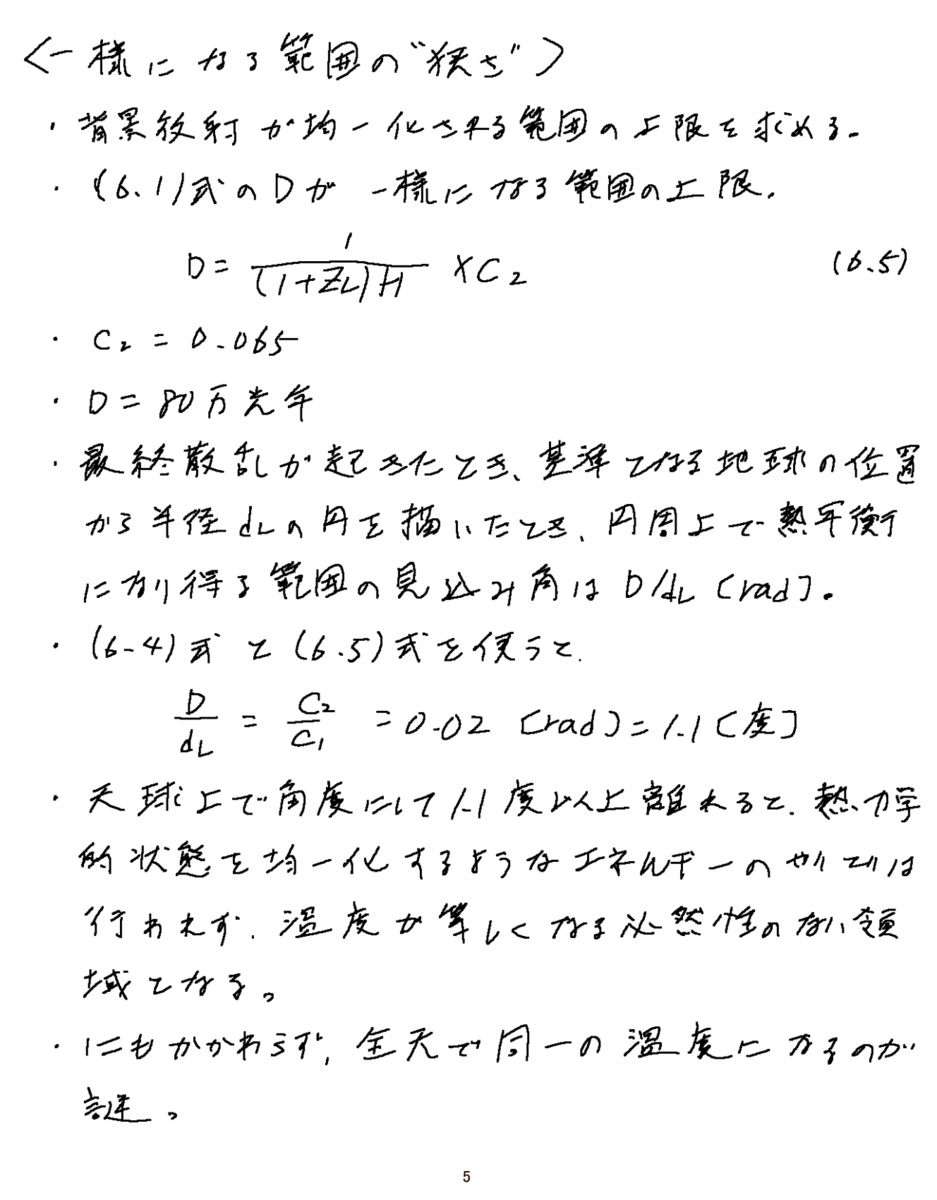 〈一様になる範囲の"狭さ"〉
・背景放射が均一化される範囲の上限を求める。
・(6.1)式のDが一様になる範囲の上限.
D = 1/((1+Z_L)H) × C₂ (6.5)
・C₂ = 0.065
・D = 80万光年
・最終散乱が起きたとき、基準となる地球の位置
から半径d_Lの円を描いたとき、円周上で熱平衡
になり得る範囲の見込み角はD/d_L [rad]。
・(6-4)式と(6.5)式を使うと.
D/d_L = C₂/C₁ = 0.02 [rad] = 1.1 [度]
・天球上で角度にして1.1度以上離れると、熱力学
的状態を均一化するようなエネルギーのやりとりは
行われず、温度が等しくなる必然性のない領
域となる。
・にもかかわらず、全天で同一の温度になるのが
謎。
5